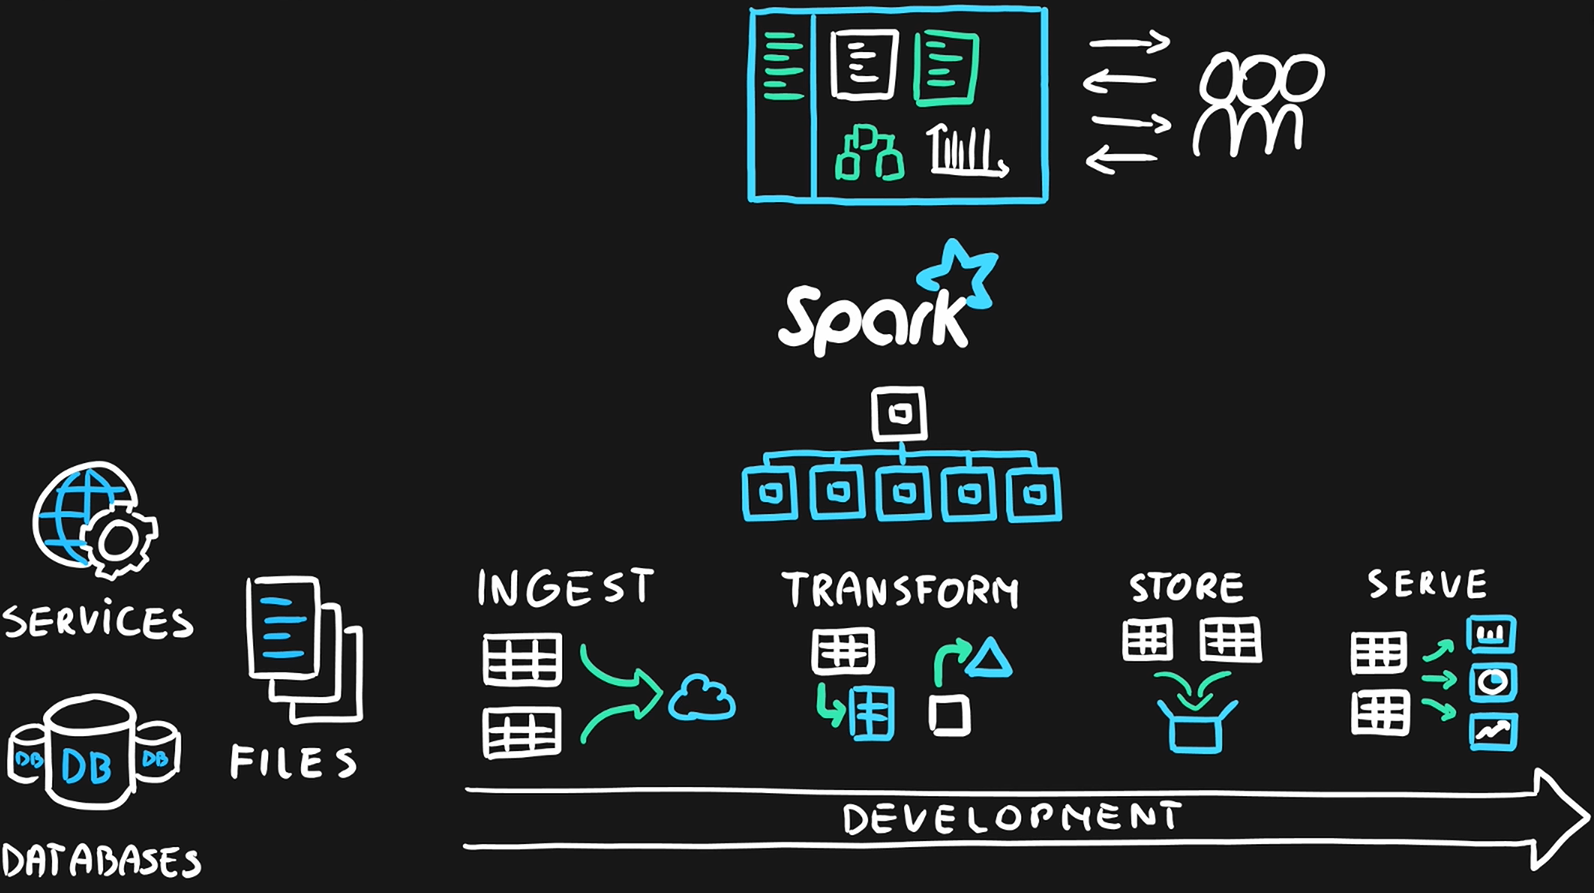 Spark
SERViCES
DB
DB
DB
DATABASES
FILES
INGEST
TRANSFORM
STORE
SERVE
DEVELOPMENT